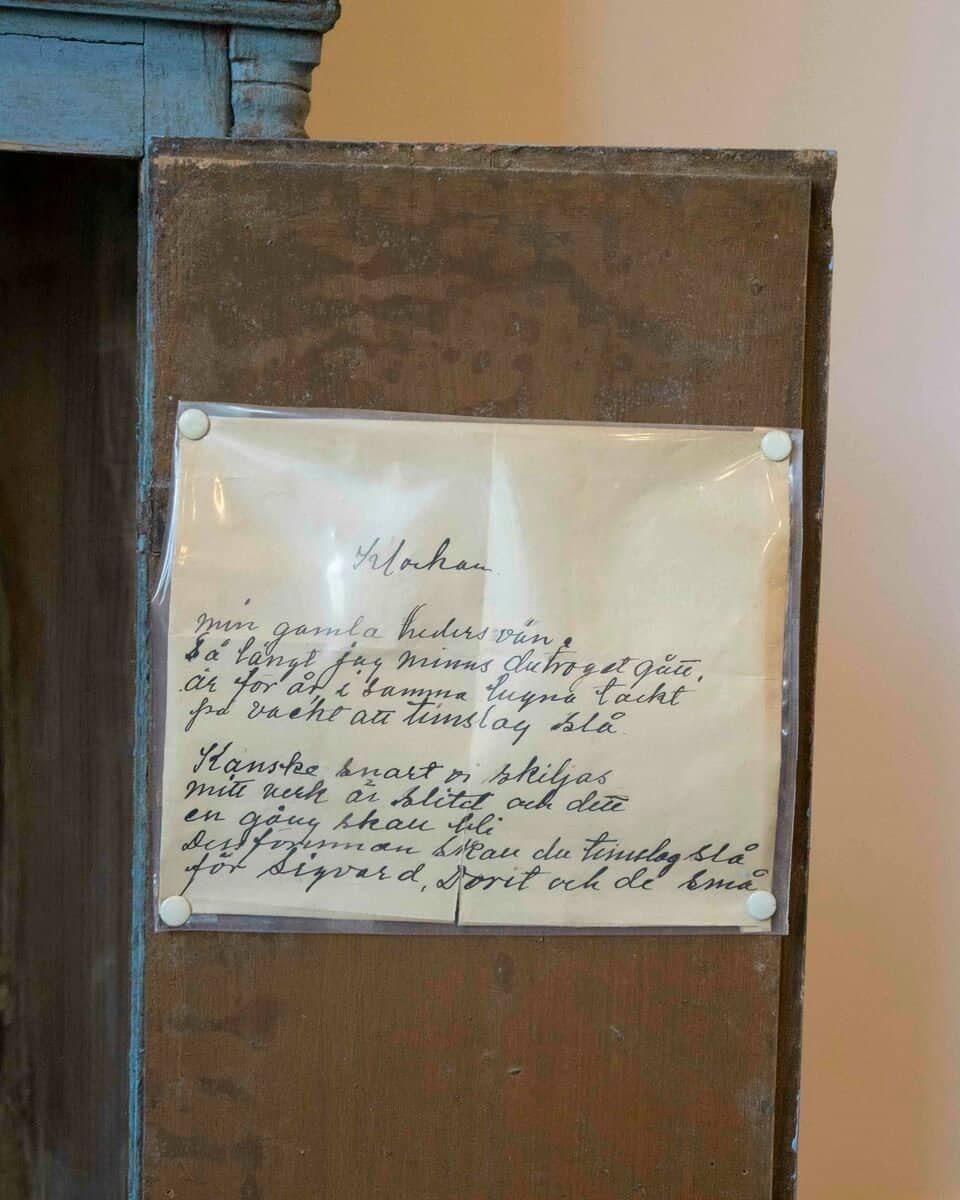 Klockan
min gamla hedersvän,
Så långt jag minns du troget gått,
år för år i samma lugna tackt
på vackt att timslag slå.
Kanske snart vi skiljas
mitt verk är slitet och dett
en gång skall bli
Dessförinnan skall du timslag slå
för Sigvard, Dorit och de små